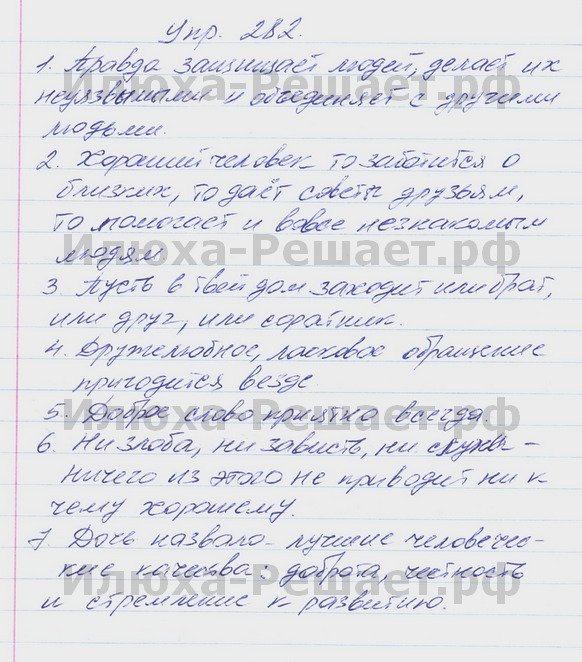 Упр. 282.
1. Правда защищает людей, делает их
неуязвимыми и объединяет с другими
людьми.
2. Хороший человек то заботится о
близких, то даёт советы друзьям,
то помогает и вовсе незнакомым
людям
3 Пусть в твой дом заходит или брат,
или друг, или соратник.
4. Дружелюбное, ласковое обращение
пригодится везде.
5. Доброе слово приятно всегда.
6. Ни злоба, ни зависть, ни –
ничего из этого не приводит ни к
чему хорошему.
7. Дочь назвала лучшие человечес-
кие качества: доброта, честность
и стремление к развитию.
Илюха-Решает.рф
Илюха-Решает.рф
Илюха-Решает.рф
Илюха-Решает.рф